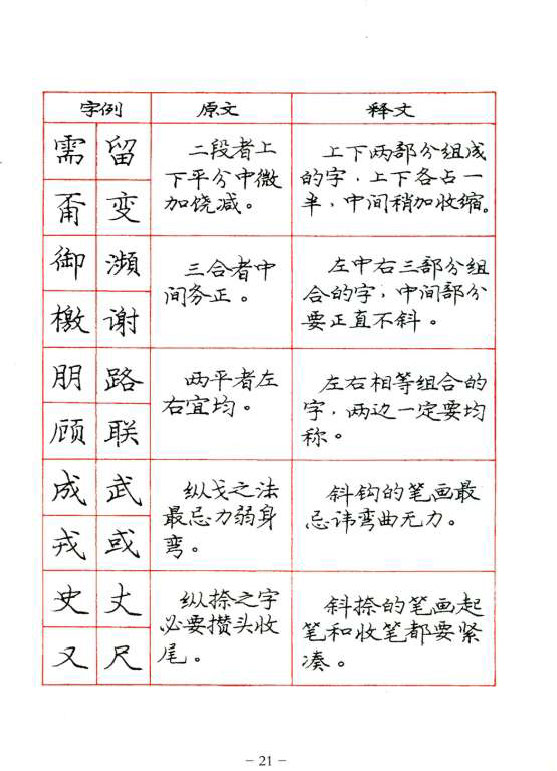 字例 原文 释文
需 留
变
二段者上
下平分中微
加饶减。
上下两部分组成
的字，上下各占一
半，中间稍加收缩。
御 濒
檄 谢
三合者中
间务正。
左中右三部分组
合的字，中间部分
要正直不斜。
朋 路
顾 联
两平者左
右宜均。
左右相等组合的
字，两边一定要均
称。
成 武
戎 或
纵戈之法
最忌力弱身
弯。
斜钩的笔画最
忌讳弯曲无力。
史 丈
又 尺
纵捺之字
必要攒头收
尾。
斜捺的笔画起
笔和收笔都要紧
凑。
- 21 -